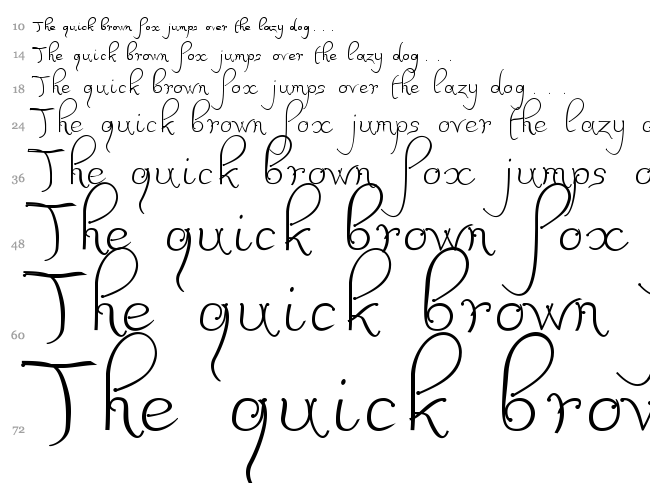 10 The quick brown fox jumps over the lazy dog. . .
14 The quick brown fox jumps over the lazy dog. . .
18 The quick brown fox jumps over the lazy dog. . .
24 The quick brown fox jumps over the lazy
36 The quick brown fox jumps
48 The quick brown fox
60 The quick brown
72 The quick brow